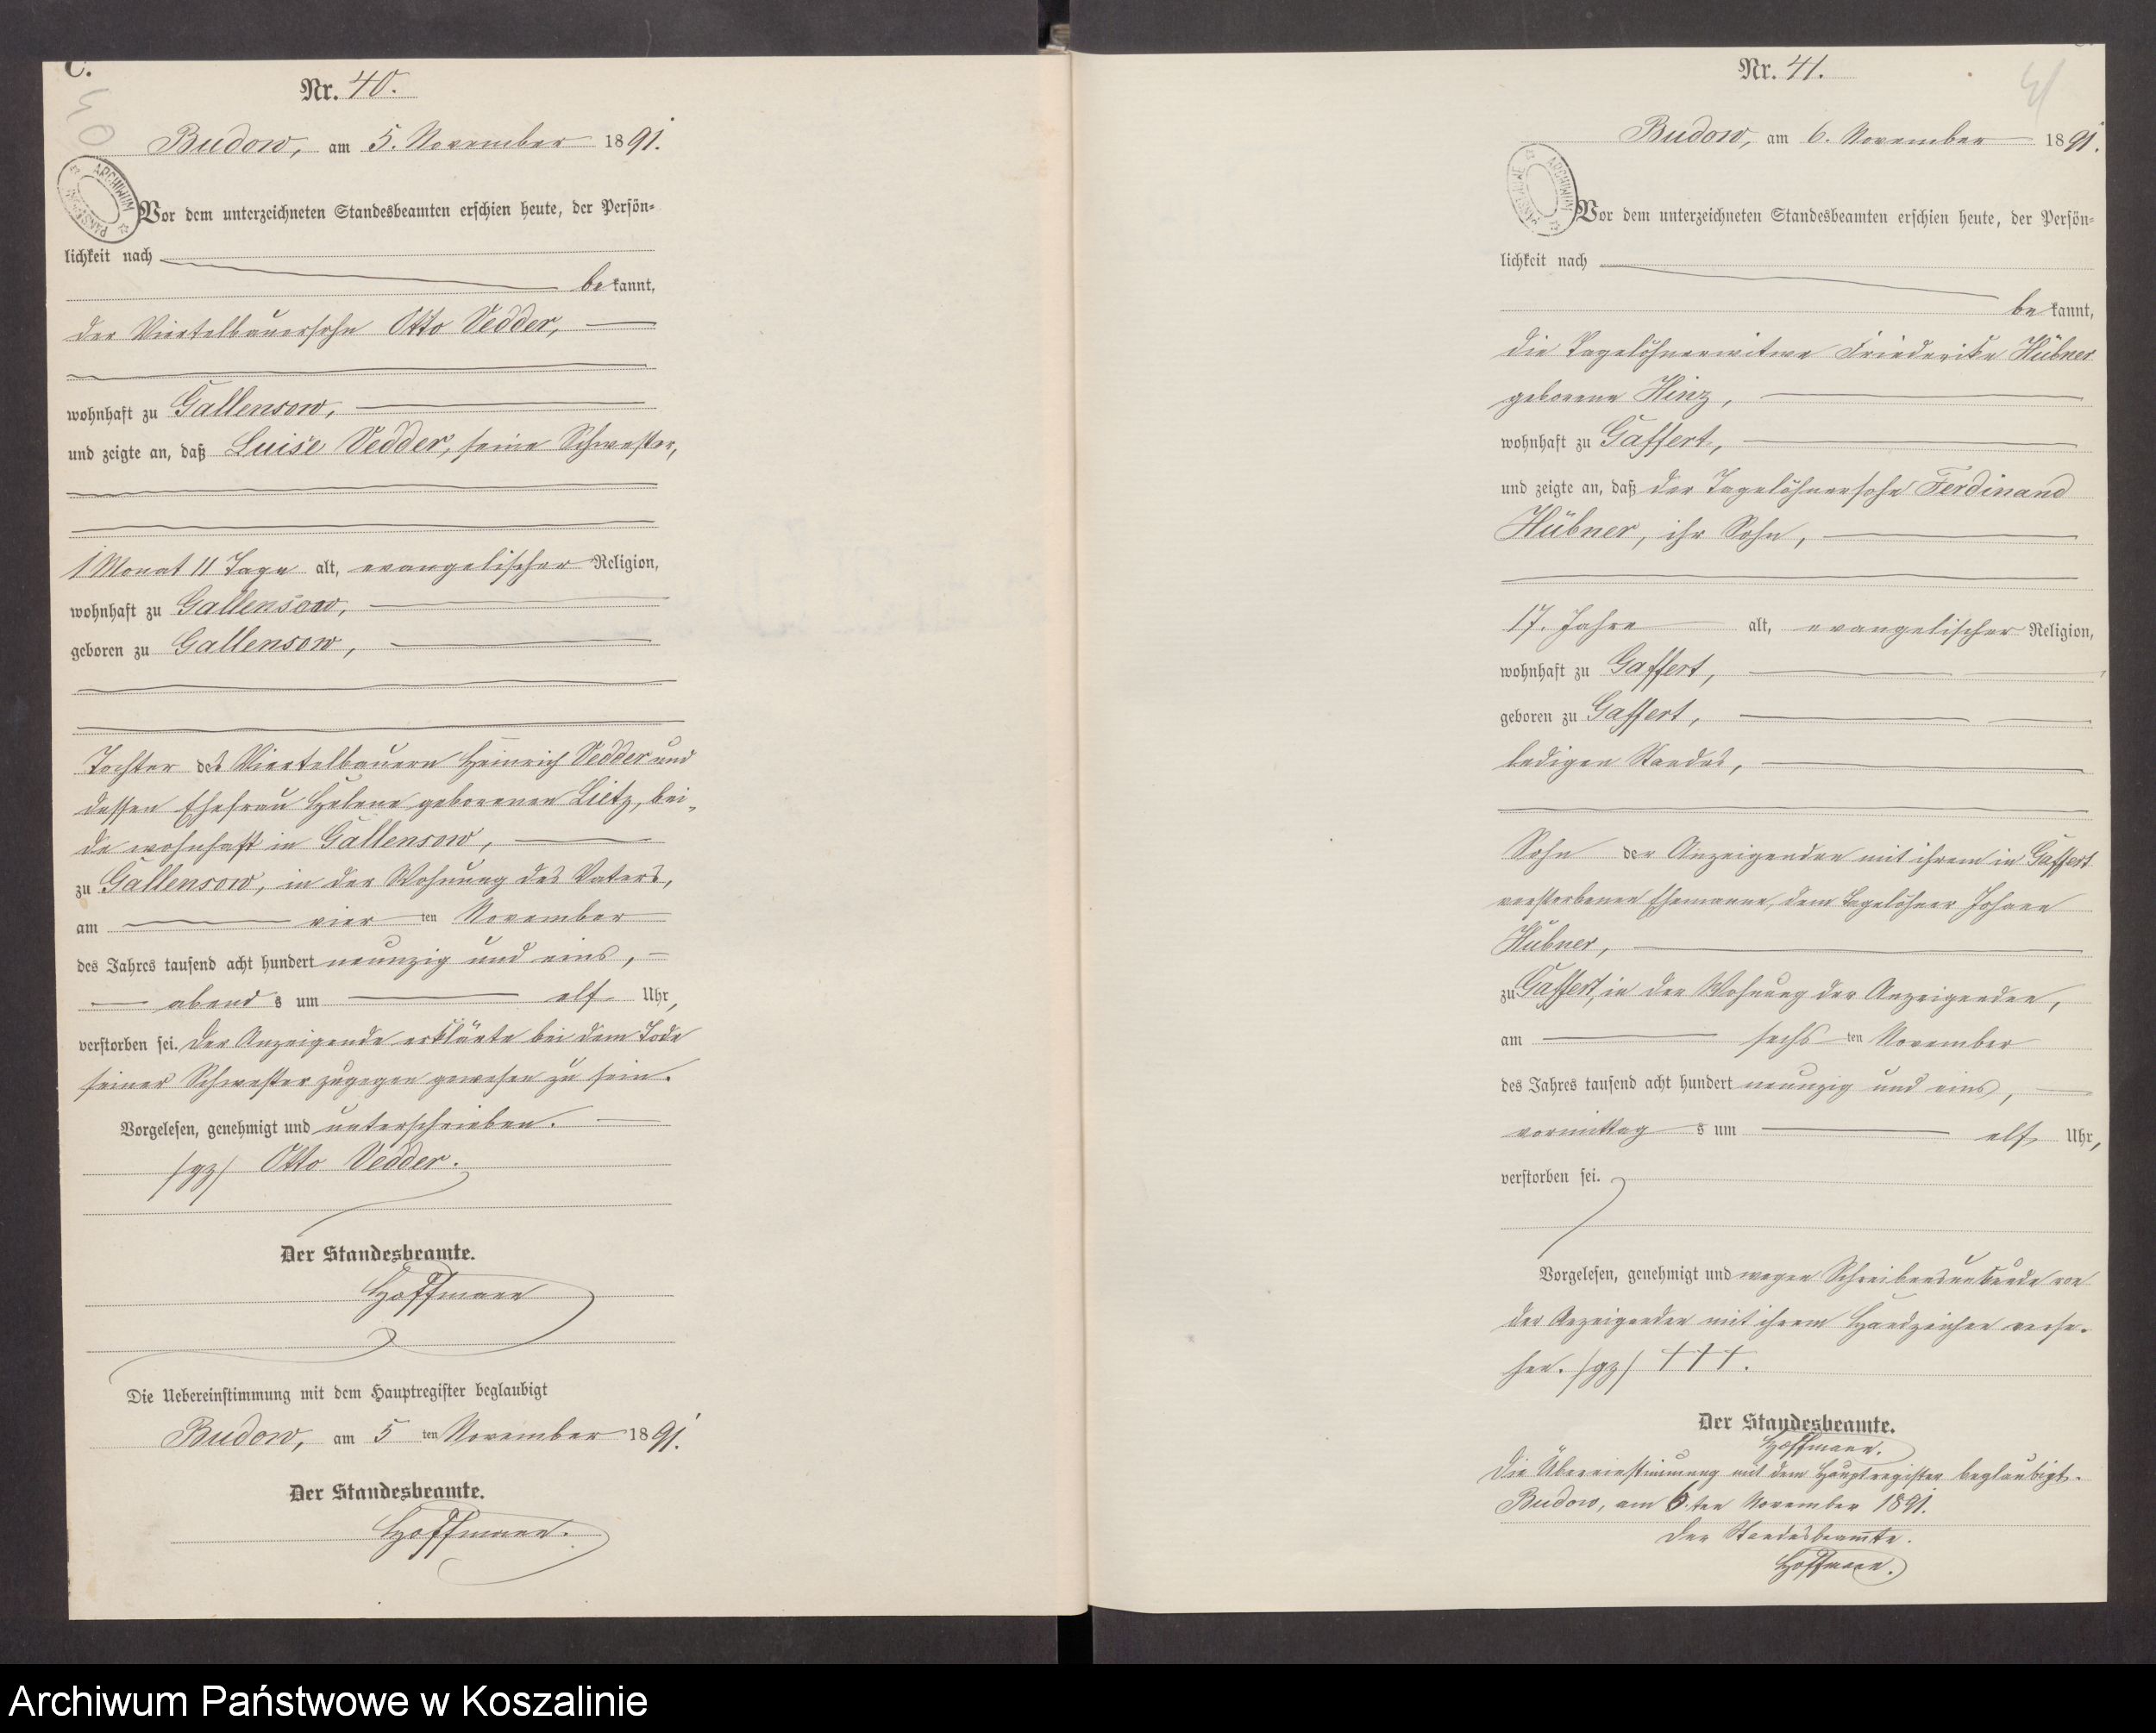 C.
40
Nr. 40.
Budow, am 5. November 1891.
ARCHIWUM PAŃSTWOWE
Vor dem unterzeichneten Standesbeamten erschien heute, der Persön-
lichkeit nach
bekannt,
der Viertelbauersohn Otto Vedder,
wohnhaft zu Gallensow,
und zeigte an, daß Luise Vedder, seine Schwester,
1 Monat 11 Tage alt, evangelischer Religion,
wohnhaft zu Gallensow,
geboren zu Gallensow,
Tochter des Viertelbauern Heinrich Vedder und
dessen Ehefrau Helene geborenen Lietz, bei-
de wohnhaft in Gallensow,
zu Gallensow, in der Wohnung des Vaters,
am vier ten November
des Jahres tausend acht hundert neunzig und eins,
abend s um elf Uhr,
verstorben sei. Der Anzeigende erklärte bei dem Tode
seiner Schwester zugegen gewesen zu sein.
Vorgelesen, genehmigt und unterschrieben.
/gz/ Otto Vedder.
Der Standesbeamte.
Hoffmann
Die Uebereinstimmung mit dem Hauptregister beglaubigt
Budow, am 5 ten November 1891.
Der Standesbeamte.
Hoffmann.
41
Nr. 41.
Budow, am 6. November 1891.
ARCHIWUM PAŃSTWOWE
Vor dem unterzeichneten Standesbeamten erschien heute, der Persön-
lichkeit nach
bekannt,
die Tagelöhnerwitwe Friederike Hübner
geborene Hinz,
wohnhaft zu Gaffert,
und zeigte an, daß der Tagelöhnersohn Ferdinand
Hübner, ihr Sohn,
17. Jahre alt, evangelischer Religion,
wohnhaft zu Gaffert,
geboren zu Gaffert,
ledigen Standes,
Sohn der Anzeigenden mit ihrem in Gaffert
verstorbenen Ehemanne, dem Tagelöhner Johann
Hübner,
zu Gaffert, in der Wohnung der Anzeigenden,
am sechs ten November
des Jahres tausend acht hundert neunzig und eins,
vormittag s um elf Uhr,
verstorben sei.
Vorgelesen, genehmigt und wegen Schreibensunkunde von
der Anzeigenden mit ihrem Handzeichen verse-
hen. /gz/ +++.
Der Standesbeamte.
Hoffmann.
Die Übereinstimmung mit dem Hauptregister beglaubigt.
Budow, am 6ten November 1891.
Der Standesbeamte.
Hoffmann.
Archiwum Państwowe w Koszalinie